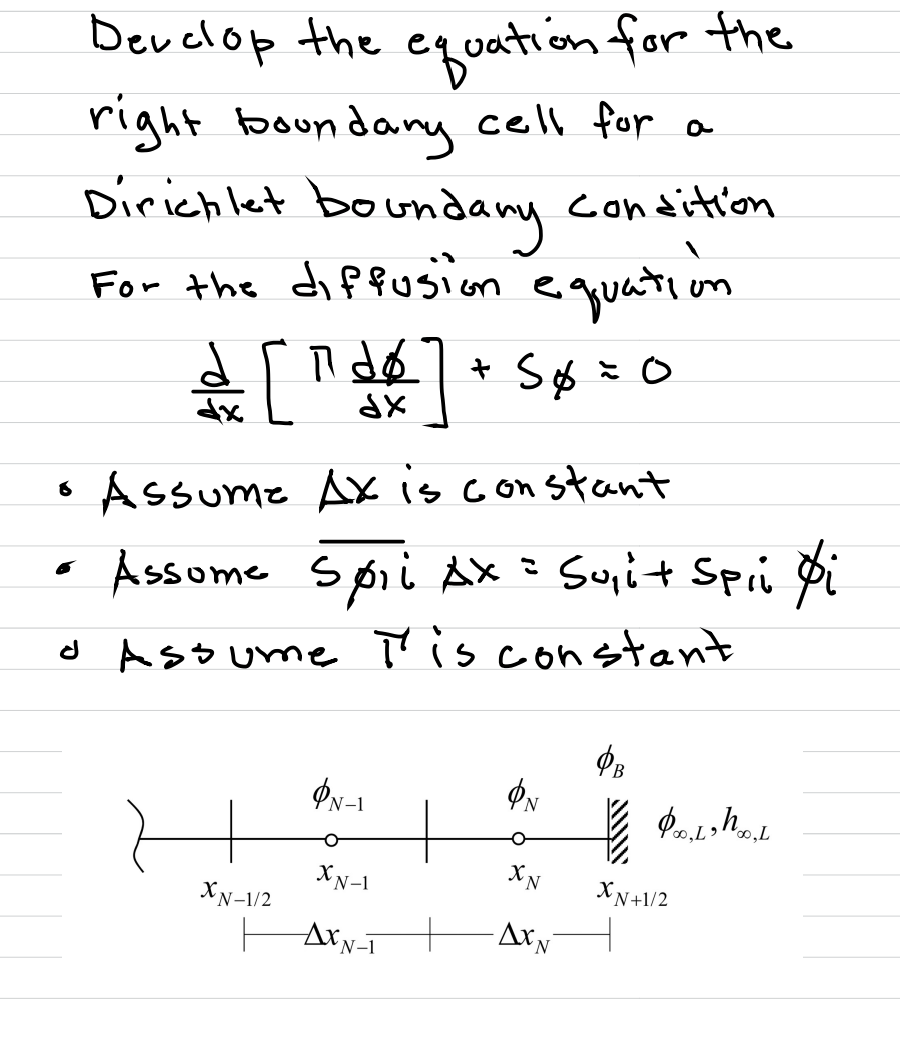 Develop the equation for the
right boundary cell for a
Dirichlet boundary condition
For the diffusion equation
d/dx [ Γ dϕ/dx ] + Sϕ = 0
• Assume Δx is constant
• Assume \overline{S_{ϕ,i}} Δx = S_{u,i} + S_{p,i} ϕ_i
• Assume Γ is constant
ϕ_B
ϕ_{N−1} ϕ_N ϕ_{∞,L}, h_{∞,L}
x_{N−1/2} x_{N−1} x_N x_{N+1/2}
Δx_{N−1} Δx_N